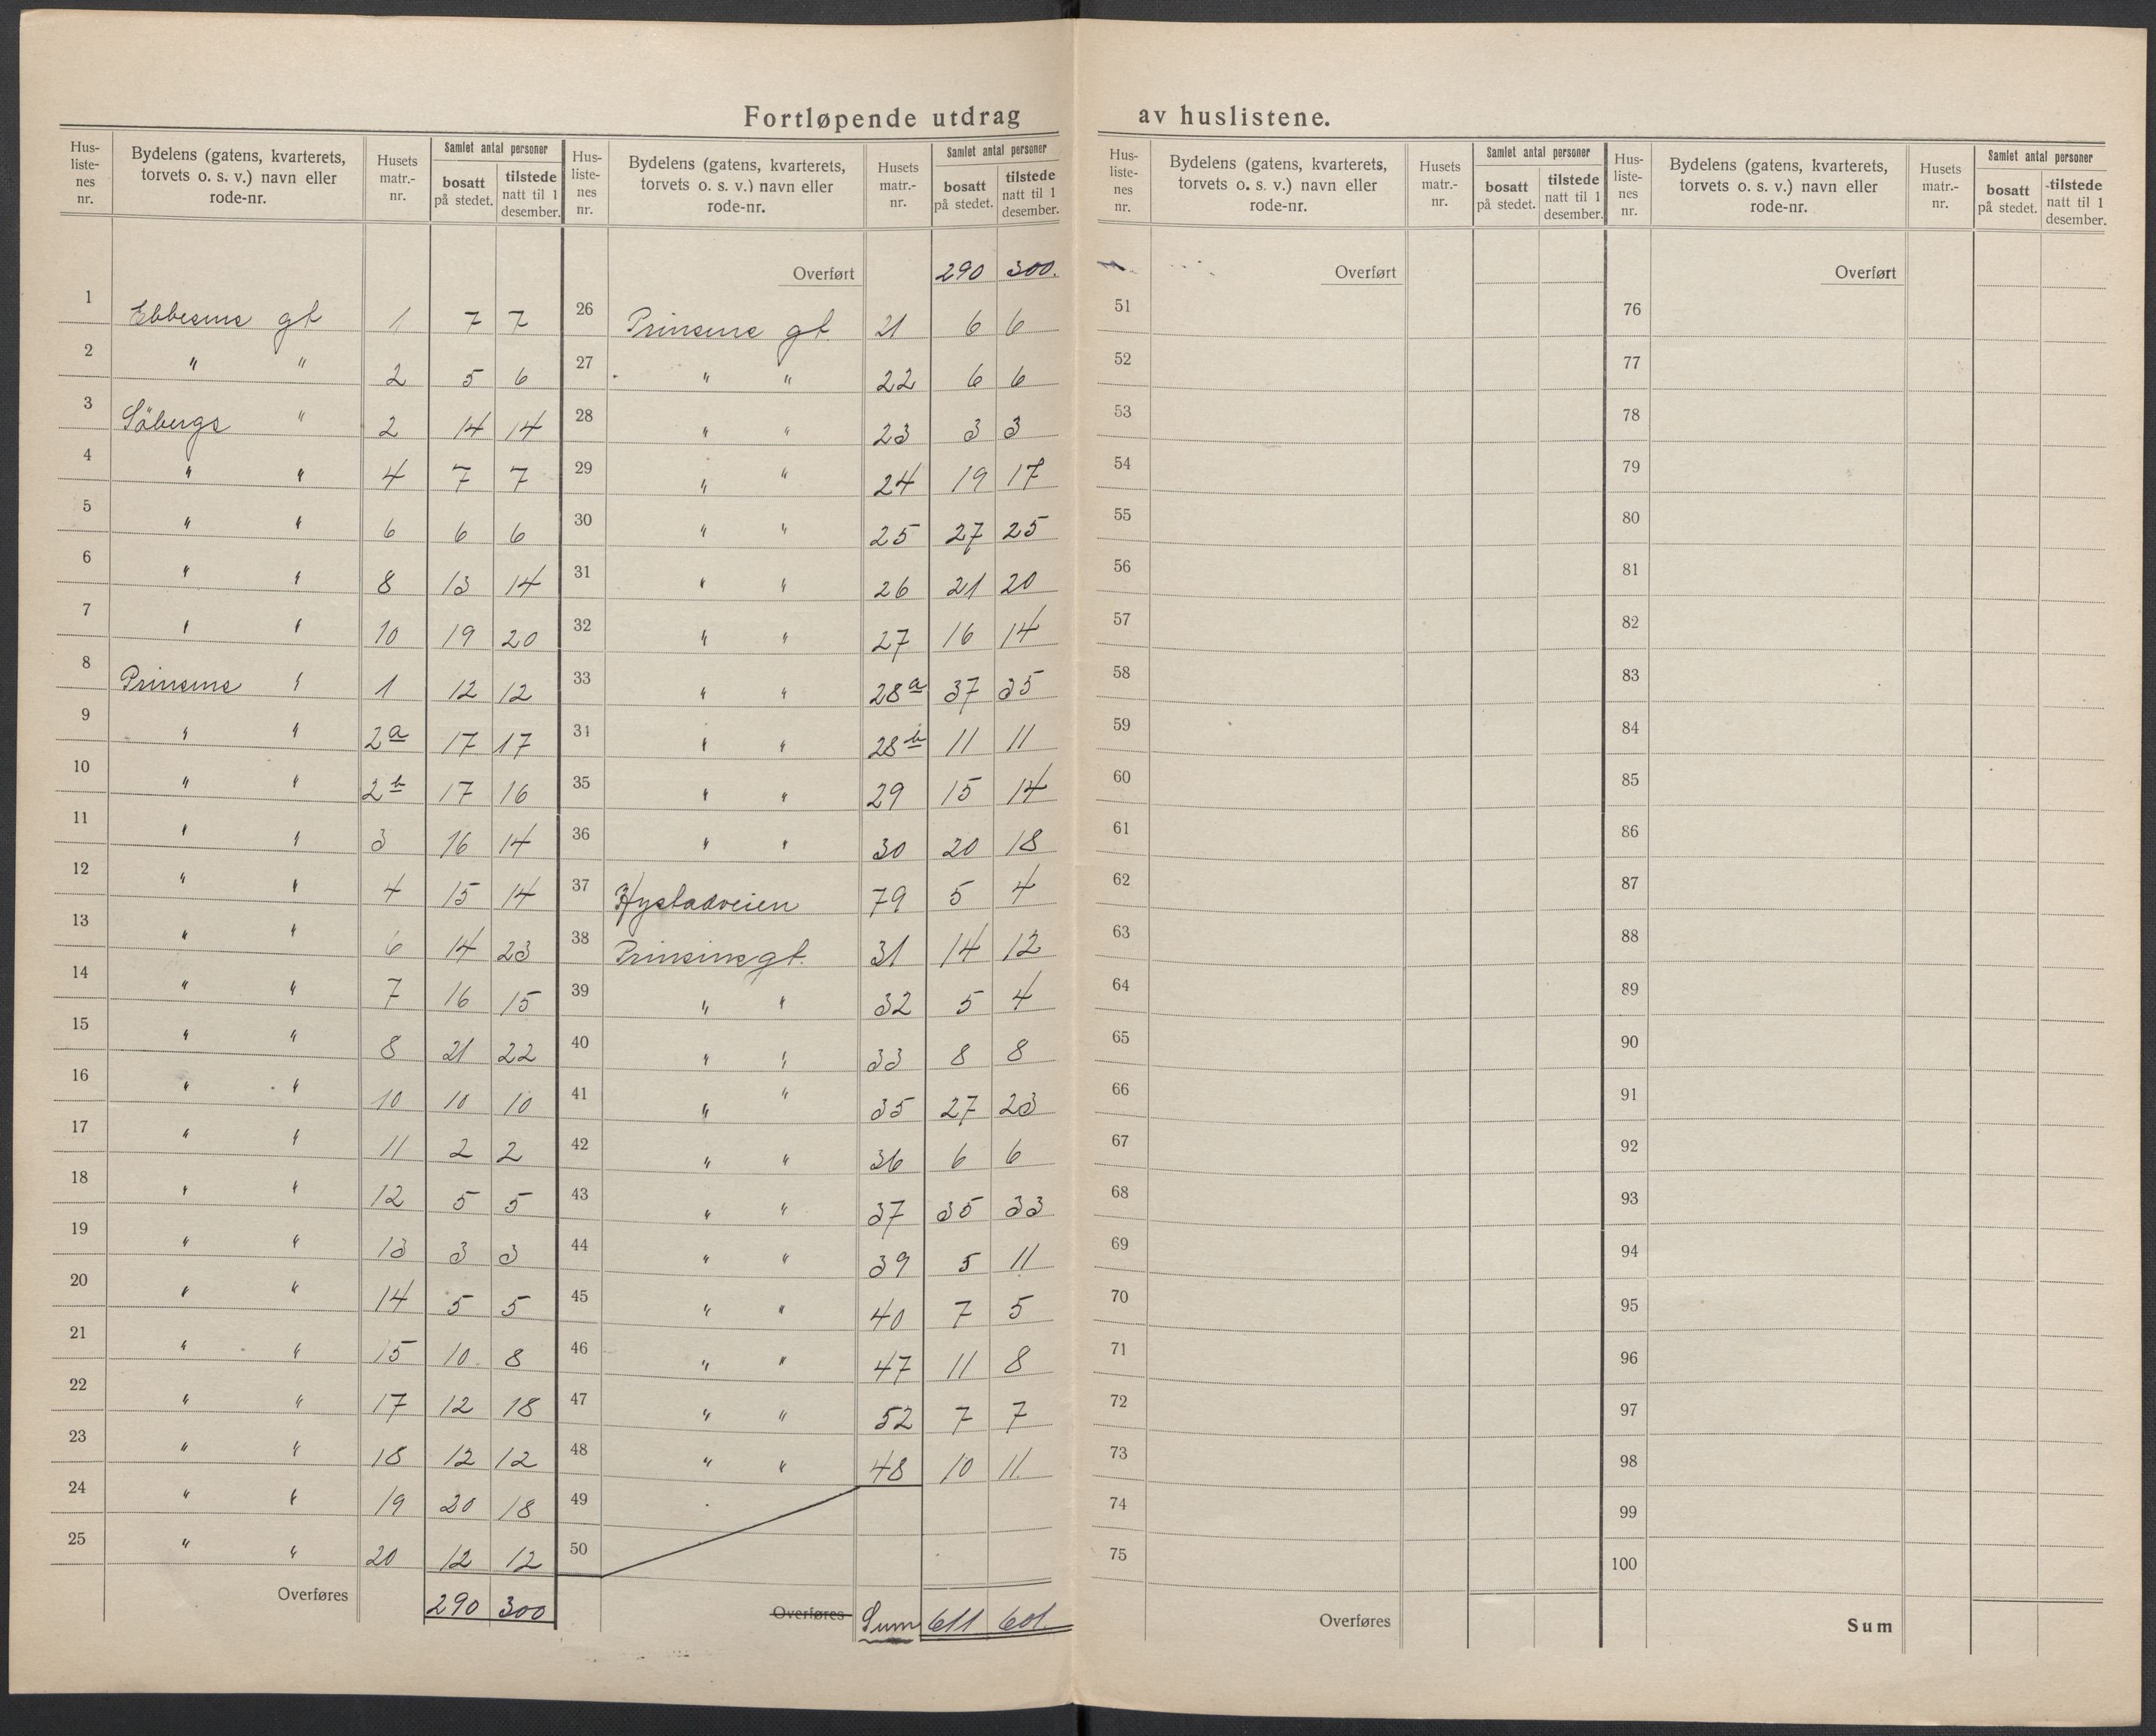 Fortløpende utdrag av huslistene.
Hus-listenes nr. Bydelens (gatens, kvarterets, torvets o. s. v.) navn eller rode-nr. Husets matr.-nr. Samlet antal personer bosatt på stedet. tilstede natt til 1 desember.
1 Ebbesens gt 1 7 7
2 " " 2 5 6
3 Söbergs " 2 14 14
4 " " 4 7 7
5 " " 6 6 6
6 " " 8 13 14
7 " " 10 19 20
8 Prinsens " 1 12 12
9 " " 2a 17 17
10 " " 2b 17 16
11 " " 3 16 14
12 " " 4 15 14
13 " " 6 14 23
14 " " 7 16 15
15 " " 8 21 22
16 " " 10 10 10
17 " " 11 2 2
18 " " 12 5 5
19 " " 13 3 3
20 " " 14 5 5
21 " " 15 10 8
22 " " 17 12 18
23 " " 18 12 12
24 " " 19 20 18
25 " " 20 12 12
Overføres 290 300
Hus-listenes nr. Bydelens (gatens, kvarterets, torvets o. s. v.) navn eller rode-nr. Husets matr.-nr. Samlet antal personer bosatt på stedet. tilstede natt til 1 desember.
Overført 290 300.
26 Prinsens gt. 21 6 6
27 " " 22 6 6
28 " " 23 3 3
29 " " 24 19 17
30 " " 25 27 25
31 " " 26 21 20
32 " " 27 16 14
33 " " 28a 37 35
31 " " 28b 11 11
35 " " 29 15 14
36 " " 30 20 18
37 Hystadveien 79 5 4
38 Prinsensgt. 31 14 12
39 " " 32 5 4
40 " " 33 8 8
41 " " 35 27 23
42 " " 36 6 6
43 " " 37 35 33
44 " " 39 5 11
45 " " 40 7 5
46 " " 47 11 8
47 " " 52 7 7
48 " " 48 10 11.
49
50
Overføres Sum 611 601.
Hus-listenes nr. Bydelens (gatens, kvarterets, torvets o. s. v.) navn eller rode-nr. Husets matr.-nr. Samlet antal personer bosatt på stedet. tilstede natt til 1 desember.
Overført
51
52
53
54
55
56
57
58
59
60
61
62
63
64
65
66
67
68
69
70
71
72
73
74
75
Overføres
Hus-listenes nr. Bydelens (gatens, kvarterets, torvets o. s. v.) navn eller rode-nr. Husets matr.-nr. Samlet antal personer bosatt på stedet. tilstede natt til 1 desember.
Overført
76
77
78
79
80
81
82
83
84
85
86
87
88
89
90
91
92
93
94
95
96
97
98
99
100
Sum